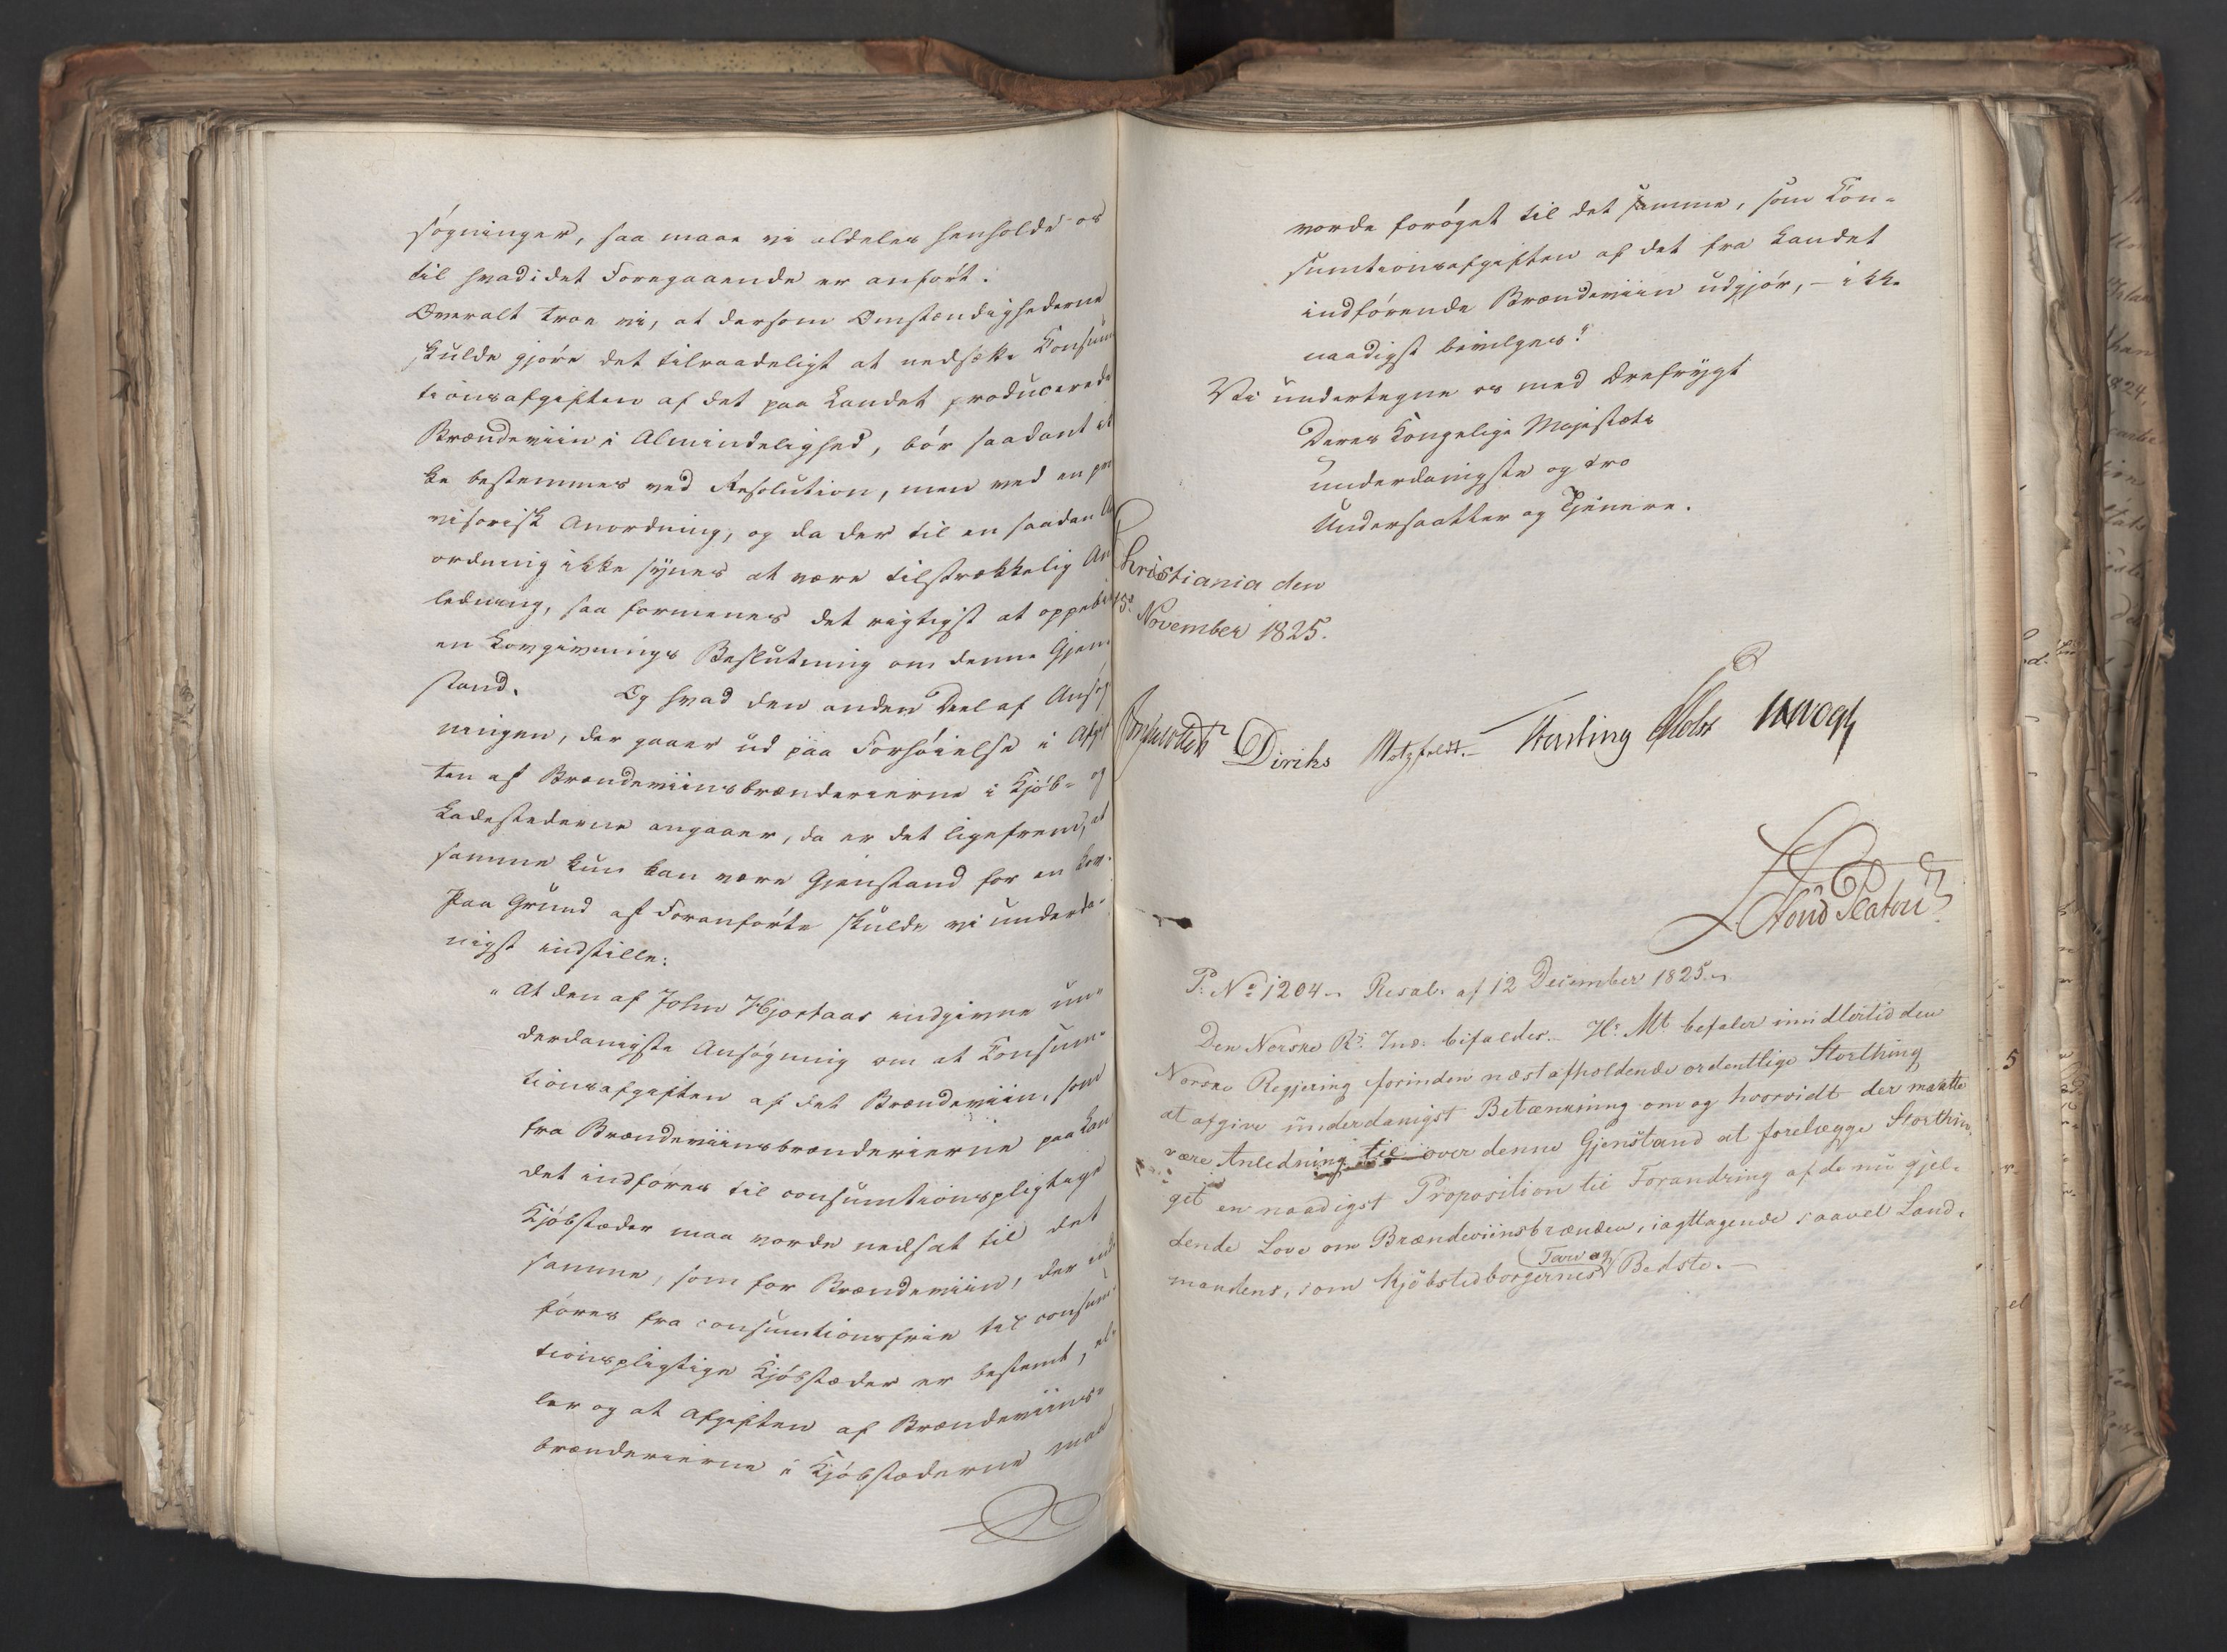 søgninger, saa maae vi aldeles henholde os
til hvad i det Foregaaende er anført.
Overalt troe vi, at dersom Omstændighederne
skulde gjøre det tilraadeligt at nedsætte Consum
tionsafgiften af det paa Landet producerede
Brændeviin i Almindelighed, bør saadant ik
ke bestemmes ved Resolution, men ved en pro
visorisk Anordning, og da der til en saadan An
ordning ikke synes at være tilstrækkelig An
ledning, saa formenes det rigtigst at oppebie
en Lovgivnings Beslutning om denne Gjen-
stand. Og hvad den anden Deel af Ansøg
ningen, der gaaer ud paa Forhøielse i Afgif
ten af Brændeviinsbrænderierne i Kjøb- og
Ladestederne angaaer, da er det ligefrem, at
samme kun kan være Gjenstand for en Lov.
Paa Grund af Foranførte skulde vi underda-
nigst indstille:
"At den af John Hjortaas indgivne un-
derdanigste Ansøgning om at Consum-
tionsafgiften af det Brændeviin, som
fra Brændeviinsbrænderierne paa Lan
det indføres til consumtionspligtige
Kjøbstæder maa vorde nedsat til det
samme, som for Brændeviin, der ind-
føres fra consumtionsfrie til consum-
tionspligtige Kjøbstæder er bestemt, el-
ler og at Afgiften af Brændeviins-
brænderierne i Kjøbstæderne maa
vorde forøget til det samme, som Con-
sumtionsafgiften af det fra Landet
indførende Brændeviin udgjør, – ikke
naadigst bevilges."
Vi undertegne os med Ærefrygt
Deres Kongelige Majestæts
underdanigste og tro
Undersaatter og Tjenere.
Christiania den
15de November 1825.
Diriks Motzfeldt. Fasting Holst
P: No 1204. Resol. af 12 December 1825.
Den Norske R:s Ind: bifaldes. Hs Mt befaler imidlertid den
Norske Regjering forinden næstafholdende ordentlige Storthing
at afgive underdanigst Betænkning om og hvorvidt der maatte
være Anledning til over denne Gjenstand at forelægge Storthin-
get en naadigst Proposition til Forandring af de nu gjel-
dende Love om Brændeviinsbrænden, iagttagende saavel Land-
mandens, som Kjøbstedborgernes Tarv og Bedste.